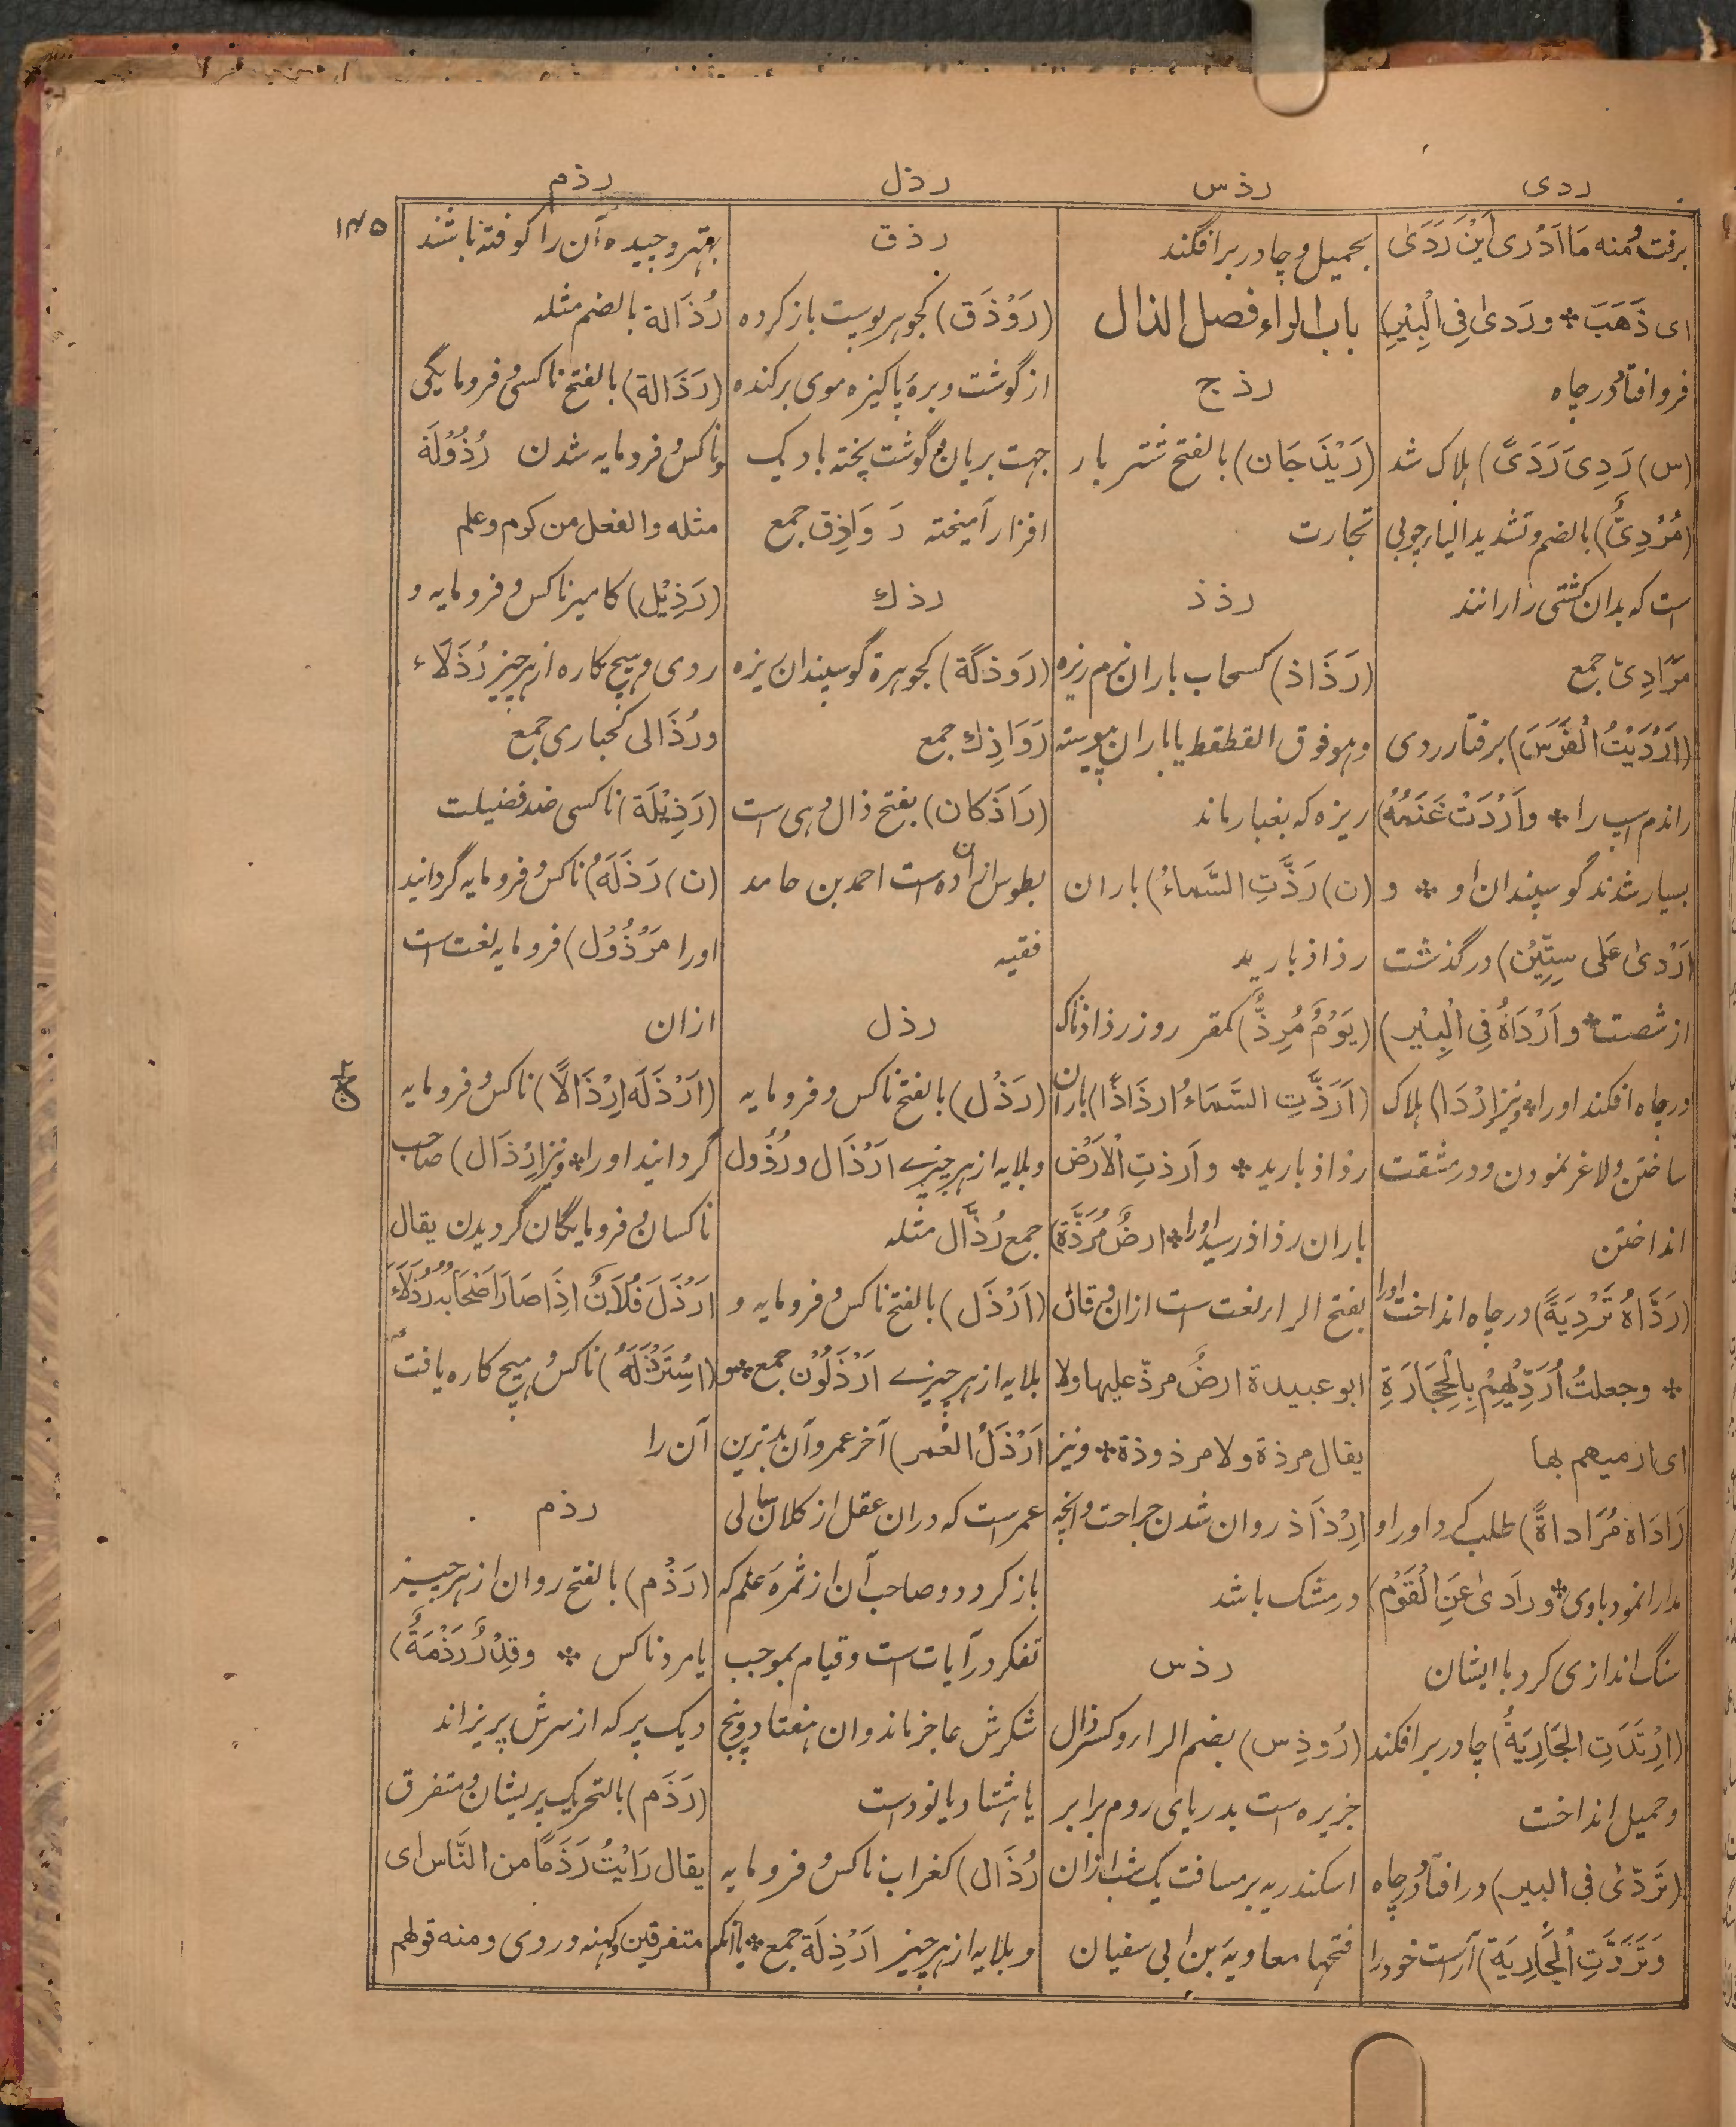 ردی
رذس
رذل
رذم
۱۴۵
برفت ومنه مَا اَدْرِی اَیْنَ رَدَیٰ
ای ذَهَبَ * ورَدیٰ فِی الْبِئْرِ)
فرو افتاد در چاه
(س) رَدِیَ رَدَیً) هلاک شد
(مُرْدِیٌّ) بالضم وتشدید الیاء چوبی
است که بدان کشتی را رانند
مَرَادِیّ جمع
(اَرْدَیْتُ الْفَرَسَ) برفتار ردی
راندم اسپ را * واَرْدَتْ غَنَمُهُ)
بسیار شدند گوسپندان او * و
اَرْدیٰ عَلی سِتِّیْن) درگذشت
از شصت * واَرْدَاهُ فِی الْبِئْیر)
در چاه افکند او را * ونیز اِرْدَا) هلاک
ساختن ولاغر نمودن ودر مشقت
انداختن
(رَدَّاهُ تَرْدِیَةً) در چاه انداخت اورا
* وجعلتُ اُرَدِّیْهِمْ بِالْحِجَارَةِ
ای ارمیهم بها
رَادَاهُ مُرَاداةً) طلب کرد اورا و
مدارا نمود باوی * ورَادیٰ عَنِ الْقَوْمِ)
سنگ اندازی کرد با ایشان
(اِرْتَدَتِ الجَارِیَةُ) چادر بر افکند
وحمیل انداخت
(تَرَدّیٰ فی البیر) در افتاد در چاه
وَتَرَدَّتِ الْجَارِیَة) آراست خود را
بحمیل وچادر بر افگند
باب الراء فصل الذال
رذج
(رَیْذَجَان) بالفتح شتر بار
تجارت
رذذ
(رَذَاذ) کسحاب باران نرم ریزه
وهو فوق القطقط یا باران پیوسته
ریزه که بغبار ماند
(ن) رَذَّتِ السَّمَاءُ) باران
رذاذ بارید
(یَوْمٌ مُرِذٌّ) کمقر روز رذاذناک
(اَرَذَّتِ السَّمَاءُ ارذَاذًا) باران
رذاذ بارید * واَرذتِ الْاَرَضُ
باران رذاذ رسید اورا * ارضٌ مُرَذَّةٌ)
بفتح الراء لغت است ازان وقال
ابو عبیدة ارضٌ مرذّ علیها ولا
یقال مرذة ولا مرذوذة * ونیز
اِرْذَاذ روان شدن جراحت وآنچه
در مشک باشد
رذس
(رُوذِس) بضم الراء وکسر ذال
جزیره است بدریای روم برابر
اسکندریه بر مسافت یک شب ازان
فتحها معاویة بن ابی سفیان
رذق
(رَوْذَق) کجوهر پوست باز کرده
از گوشت وبرهٔ پاکیزه موی برکنده
جهت بریان وگوشت پخته بادیک
افزار آمیخته رَوَاذِق جمع
رذك
(رَوذكَة) کجوهرة گوسپندان یزه
رَوَاذِك جمع
(رَاذَكان) بفتح ذال دهی است
بطوس ازان ده است احمد بن حامد
فقیه
رذل
(رَذْل) بالفتح ناکس وفرومایه
وبلایه از هر چیزے اَرْذَال ورُذُول
جمع رُذَّال مثله
(اَرْذَل) بالفتح ناکس وفرومایه و
بلایه از هر چیزے اَرْذَلُوْن جمع * و
اَرْذَلُ الْعُمر) آخر عمر وآن بدترین
عمر است که دران عقل از کلان سالی
باز گردد وصاحب آن از ثمرهٔ علم که
تفکر در آیات است وقیام بموجب
شکرش عاجز ماند وآن هفتاد وپنج
یا هشتاد یا نود است
رُذَال) کغراب ناکس وفرومایه
وبلایه از هر چیز اَرْذِلَة جمع * یا آنکه
بهتر وچیده آن را گرفته باشند
رُذَالة بالضم مثله
(رَذَالة) بالفتح ناکسی وفرومایگی
وناکس وفرومایه شدن رُذُوْلَة
مثله والفعل من کرم وعلم
(رَذِیْل) کامیر ناکس وفرومایه و
ردی وهیچ کاره از هر چیز رُذَلَاء
ورُذَالی کحباری جمع
(رَذِیْلَة) ناکسی ضد فضیلت
(ن) رَذَلَهُ) ناکس وفرومایه گردانید
اورا مَرْذُوْل) فرومایه لغت است
ازان
(اَرْذَلَه اِرْذَالًا) ناکس وفرومایه
گردانید اورا * ونیز اِرْذَال) صاحب
ناکسان وفرومایگان گردیدن یقال
اَرْذَلَ فُلَانٌ اِذَا صَارَ اَصْحَابُهُ رُذَلَاءَ
(اِسْتَرْذَلَهُ) ناکس وهیچ کاره یافت
آن را
رذم
(رَذْم) بالفتح روان از هر چیز
یا مرد ناکس * وقِدْرٌ رَذْمَةٌ)
دیک پر که از سرش پریزاند
(رَذَم) بالتحریک پریشان ومتفرق
یقال رَایْتُ رَذَمًا من النَّاس ای
متفرقین وکهنه وردی ومنه قولهم